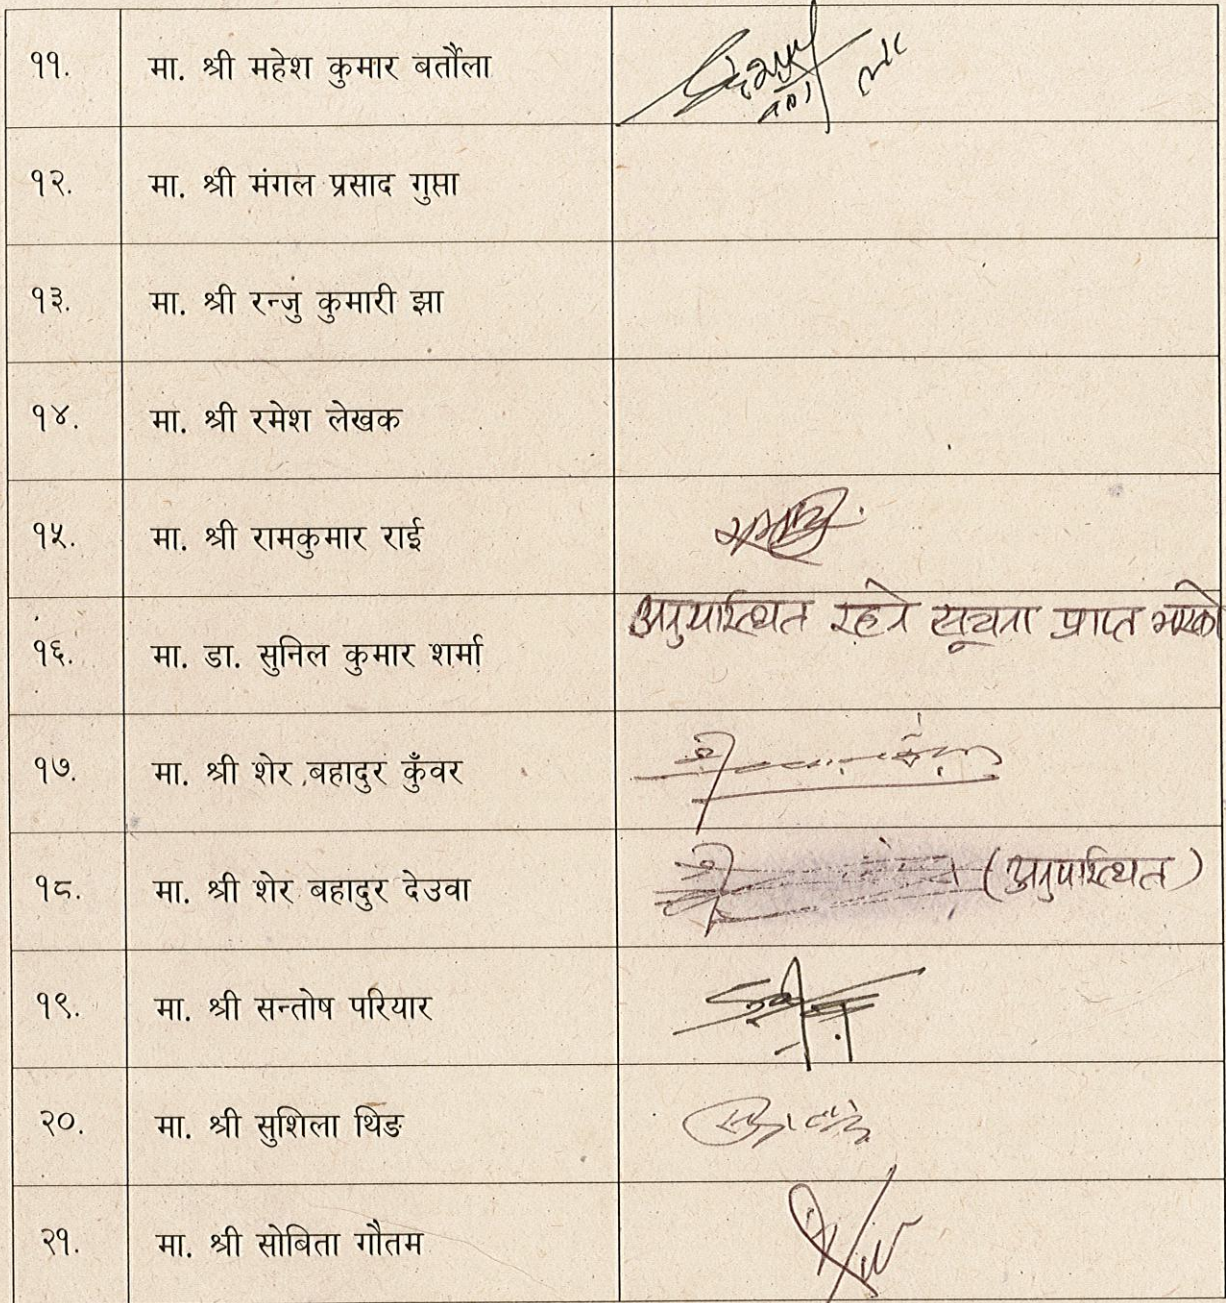 ११. मा. श्री महेश कुमार बर्तौला
१२. मा. श्री मंगल प्रसाद गुप्ता
१३. मा. श्री रन्जु कुमारी झा
१४. मा. श्री रमेश लेखक
१५. मा. श्री रामकुमार राई
१६. मा. डा. सुनिल कुमार शर्मा अनुपस्थित रहने सूचना प्राप्त भएको
१७. मा. श्री शेर बहादुर कुँवर
१८. मा. श्री शेर बहादुर देउवा (अनुपस्थित)
१९. मा. श्री सन्तोष परियार
२०. मा. श्री सुशिला थिङ
२१. मा. श्री सोबिता गौतम